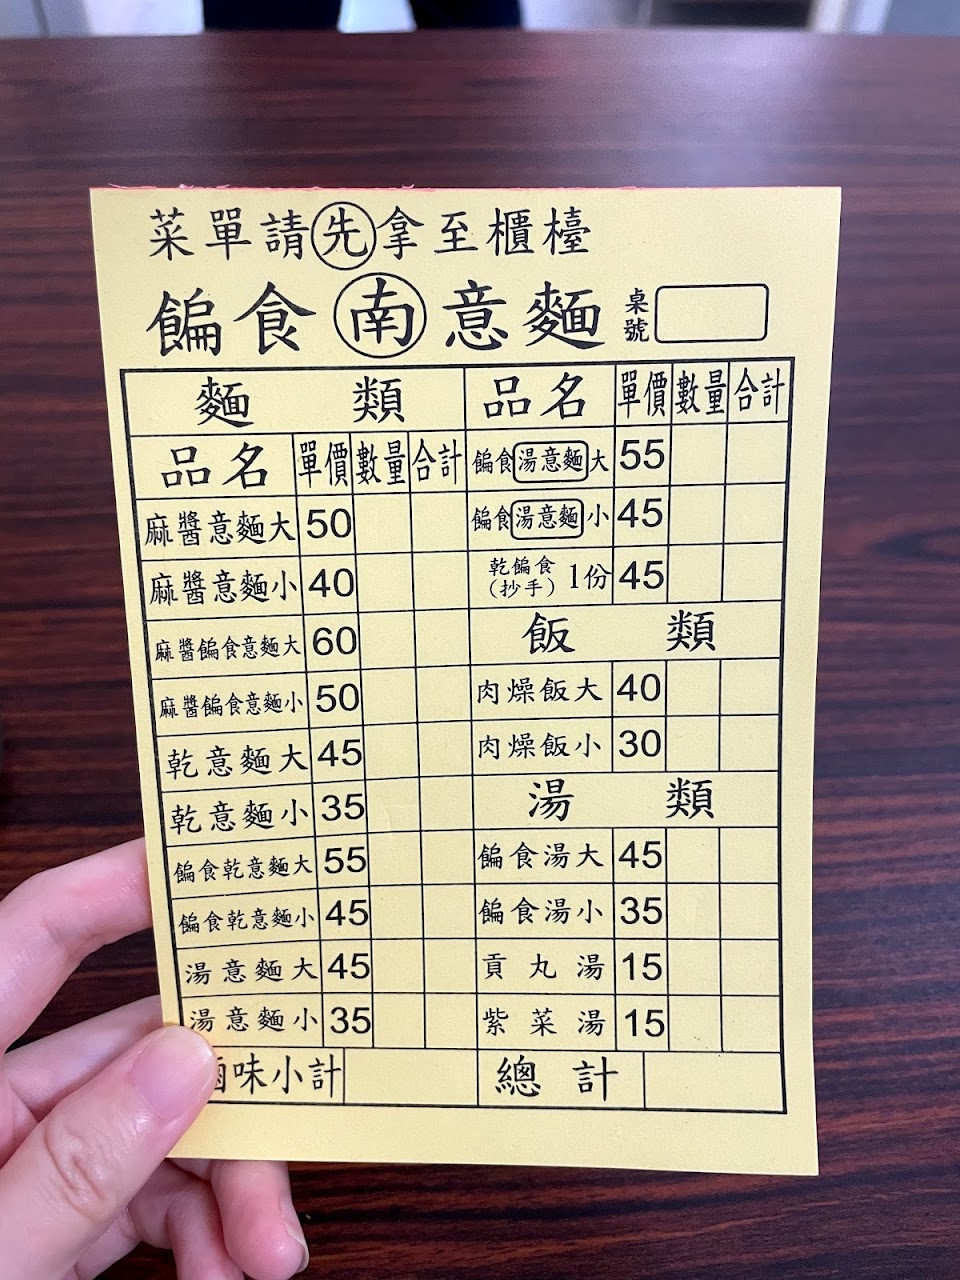 菜單請先拿至櫃檯
餶食南意麵 桌號
麵類
品名 單價 數量 合計
麻醬意麵大 50
麻醬意麵小 40
麻醬餶食意麵大 60
麻醬餶食意麵小 50
乾意麵大 45
乾意麵小 35
餶食乾意麵大 55
餶食乾意麵小 45
湯意麵大 45
湯意麵小 35
滷味小計
品名 單價 數量 合計
餶食湯意麵大 55
餶食湯意麵小 45
乾餶食(抄手) 1份 45
飯類
肉燥飯大 40
肉燥飯小 30
湯類
餶食湯大 45
餶食湯小 35
貢丸湯 15
紫菜湯 15
總計